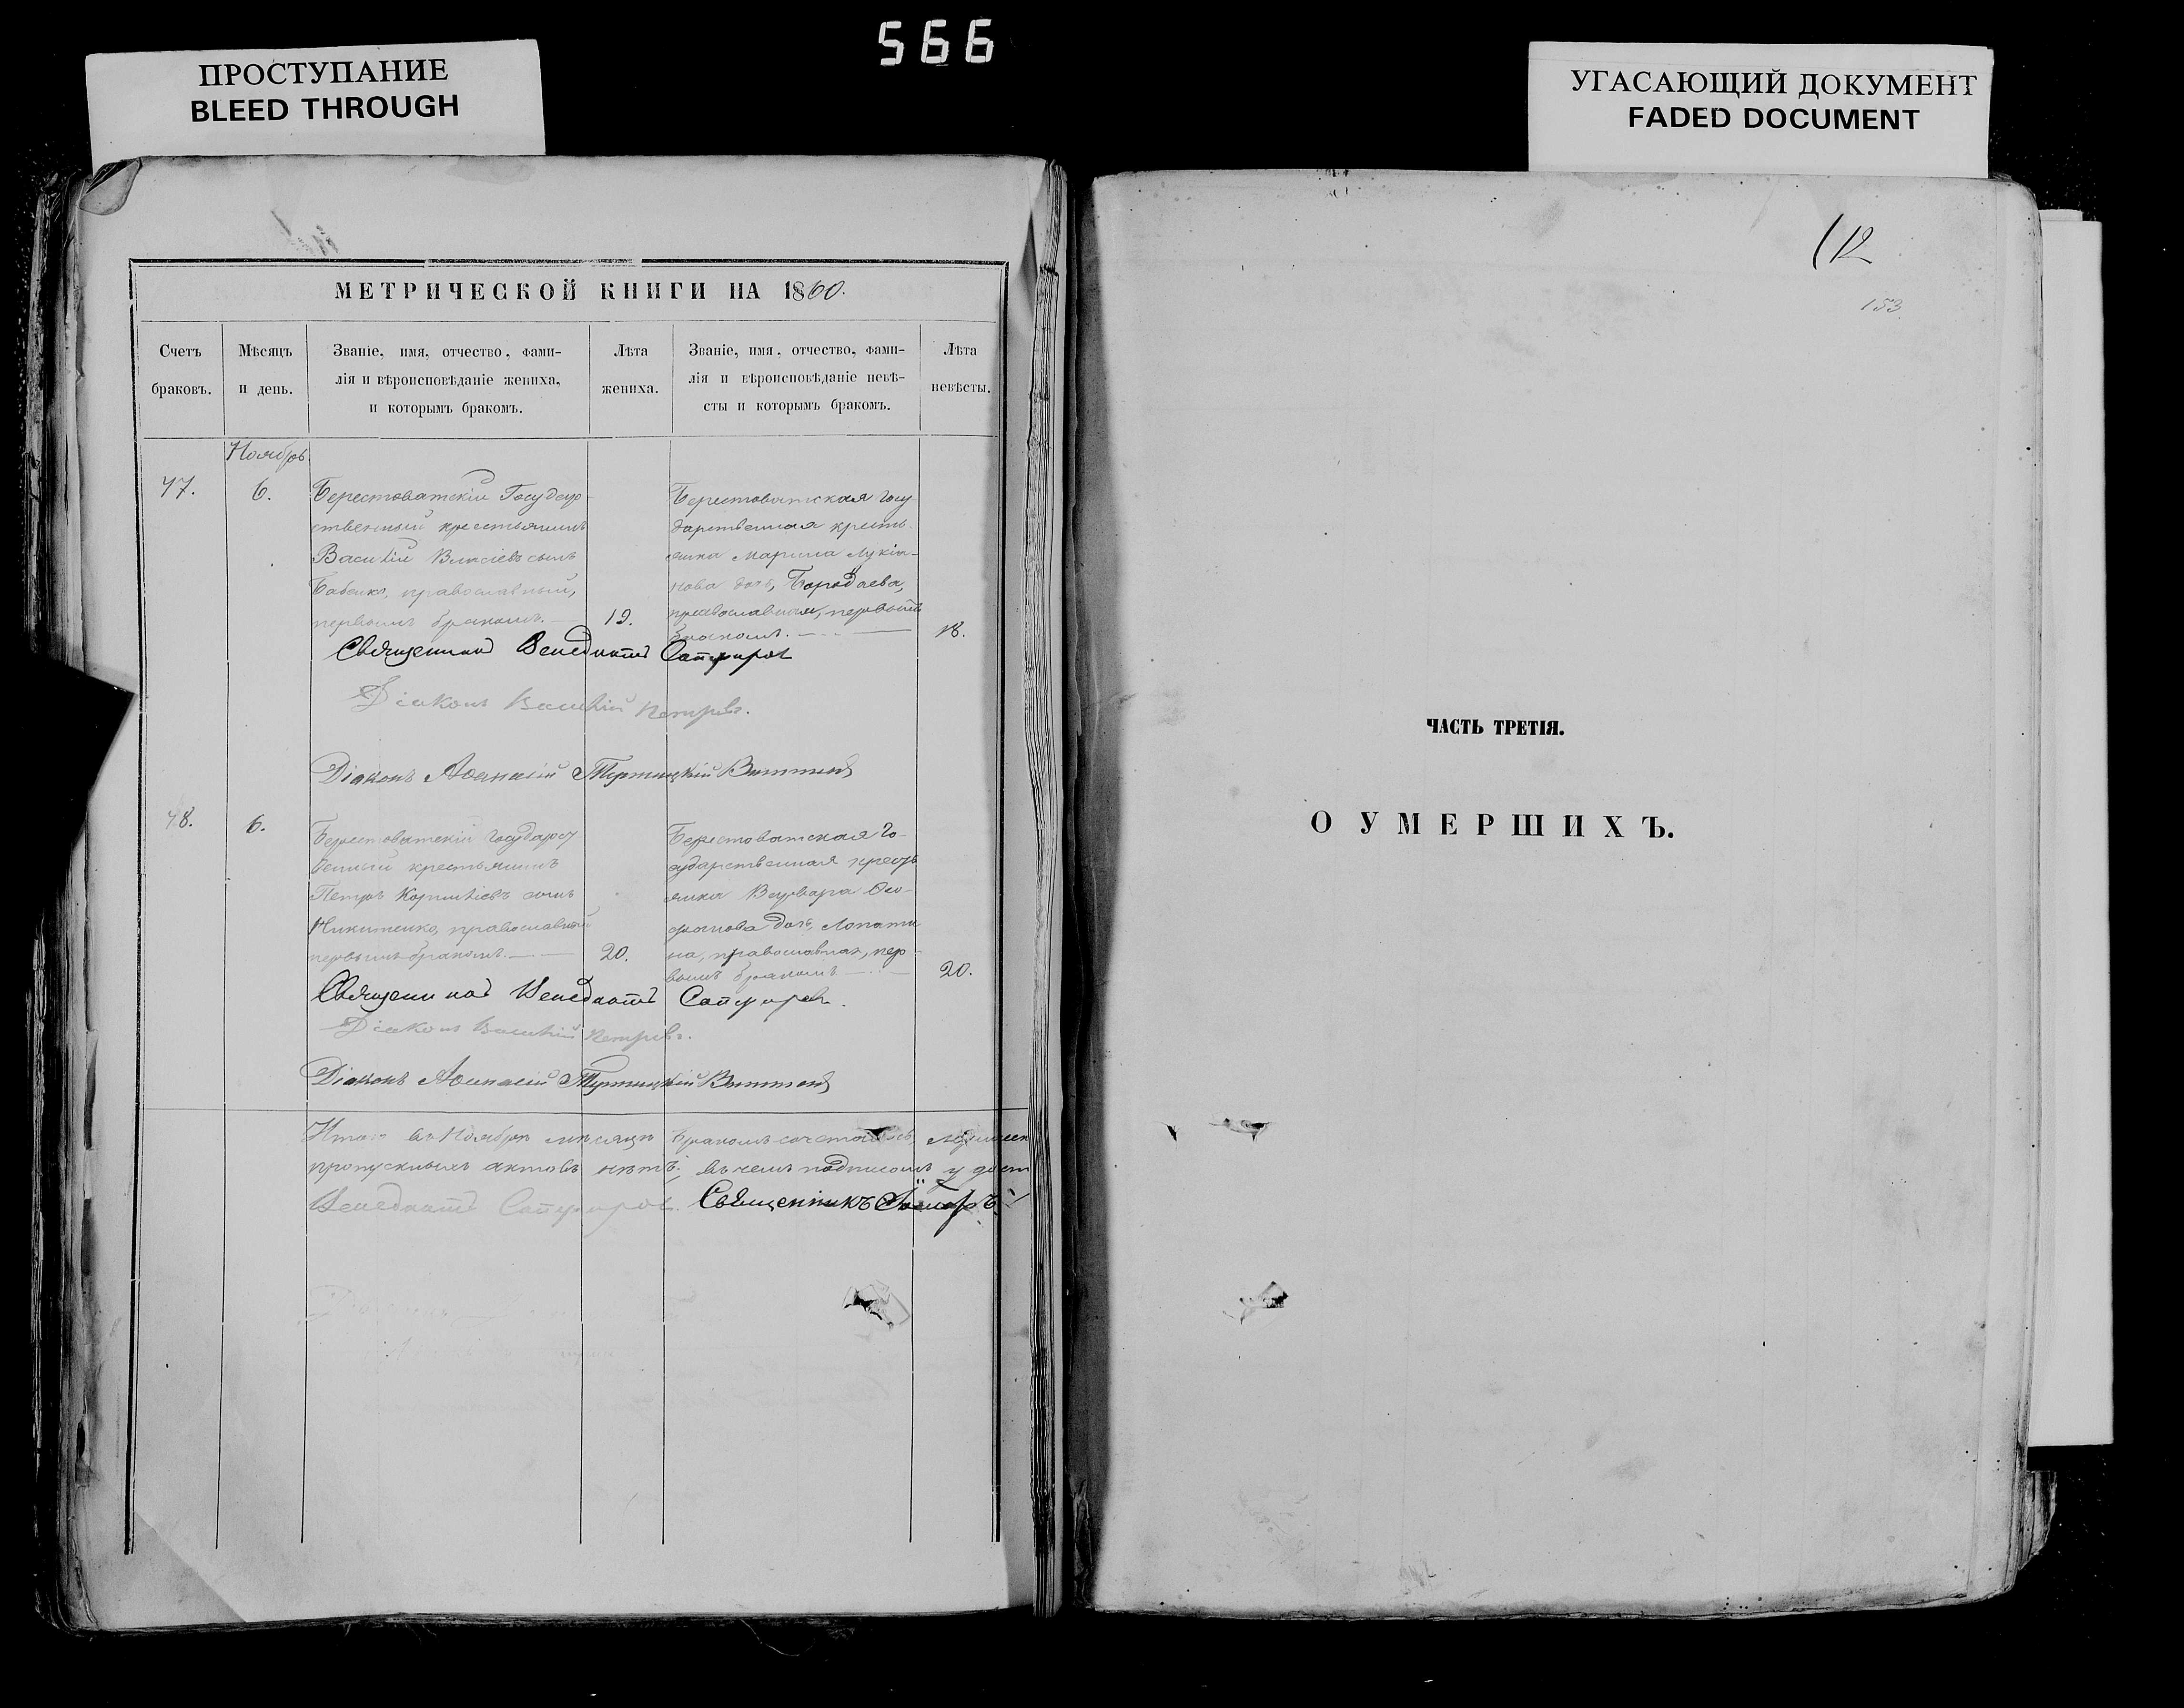 566
ПРОСТУПАНИЕ
BLEED THROUGH
УГАСАЮЩИЙ ДОКУМЕНТ
FADED DOCUMENT
МЕТРИЧЕСКОЙ КНИГИ НА 1860.
Счетъ браковъ.
Мѣсяцъ и день.
Званіе, имя, отчество, фами-
лія и вѣроисповѣданіе жениха,
и которымъ бракомъ.
Лѣта жениха.
Званіе, имя, отчество, фами-
лія и вѣроисповѣданіе невѣ-
сты и которымъ бракомъ.
Лѣта невѣсты.
Ноябрь.
47.
6.
Берестоватскій Государ-
ственный крестьянинъ
Василій сынъ
Бабенко, православный,
первымъ бракомъ.
19.
Берестоватская госу
дарственная кресть
янка Марина Лукія-
нова дочь, Бородаева,
православная, первымъ
бракомъ.
18.
Священникъ Венедиктъ Сапфировъ
Діаконъ Василій Петровъ.
Діаконъ Аѳанасій
48.
6.
Берестоватскій государст
венный крестьянинъ
Петръ Корниліевъ сынъ
Никитенко, православный
первымъ бракомъ.
20.
Берестоватская го-
сударственная кресть
янка Варвара
дочь, Лопати
на, православная, пер-
вымъ бракомъ
20.
Священникъ Венедиктъ Сапфировъ.
Діаконъ Василій Петровъ.
Діаконъ Аѳанасій
Итого въ Ноябрѣ мѣсяцѣ бракомъ сочеталось
пропускныхъ актовъ нѣтъ; въ чемъ подписомъ
Венедиктъ Сапфировъ. Священникъ
(12
153.
ЧАСТЬ ТРЕТІЯ.
О УМЕРШИХЪ.